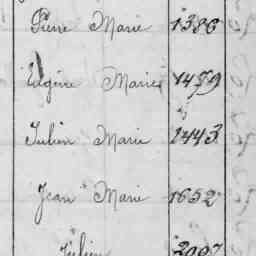 Pierre Marie 1386
Eugène Marie 1479
Julien Marie 1443
Jean Marie 1652
Julien 2007